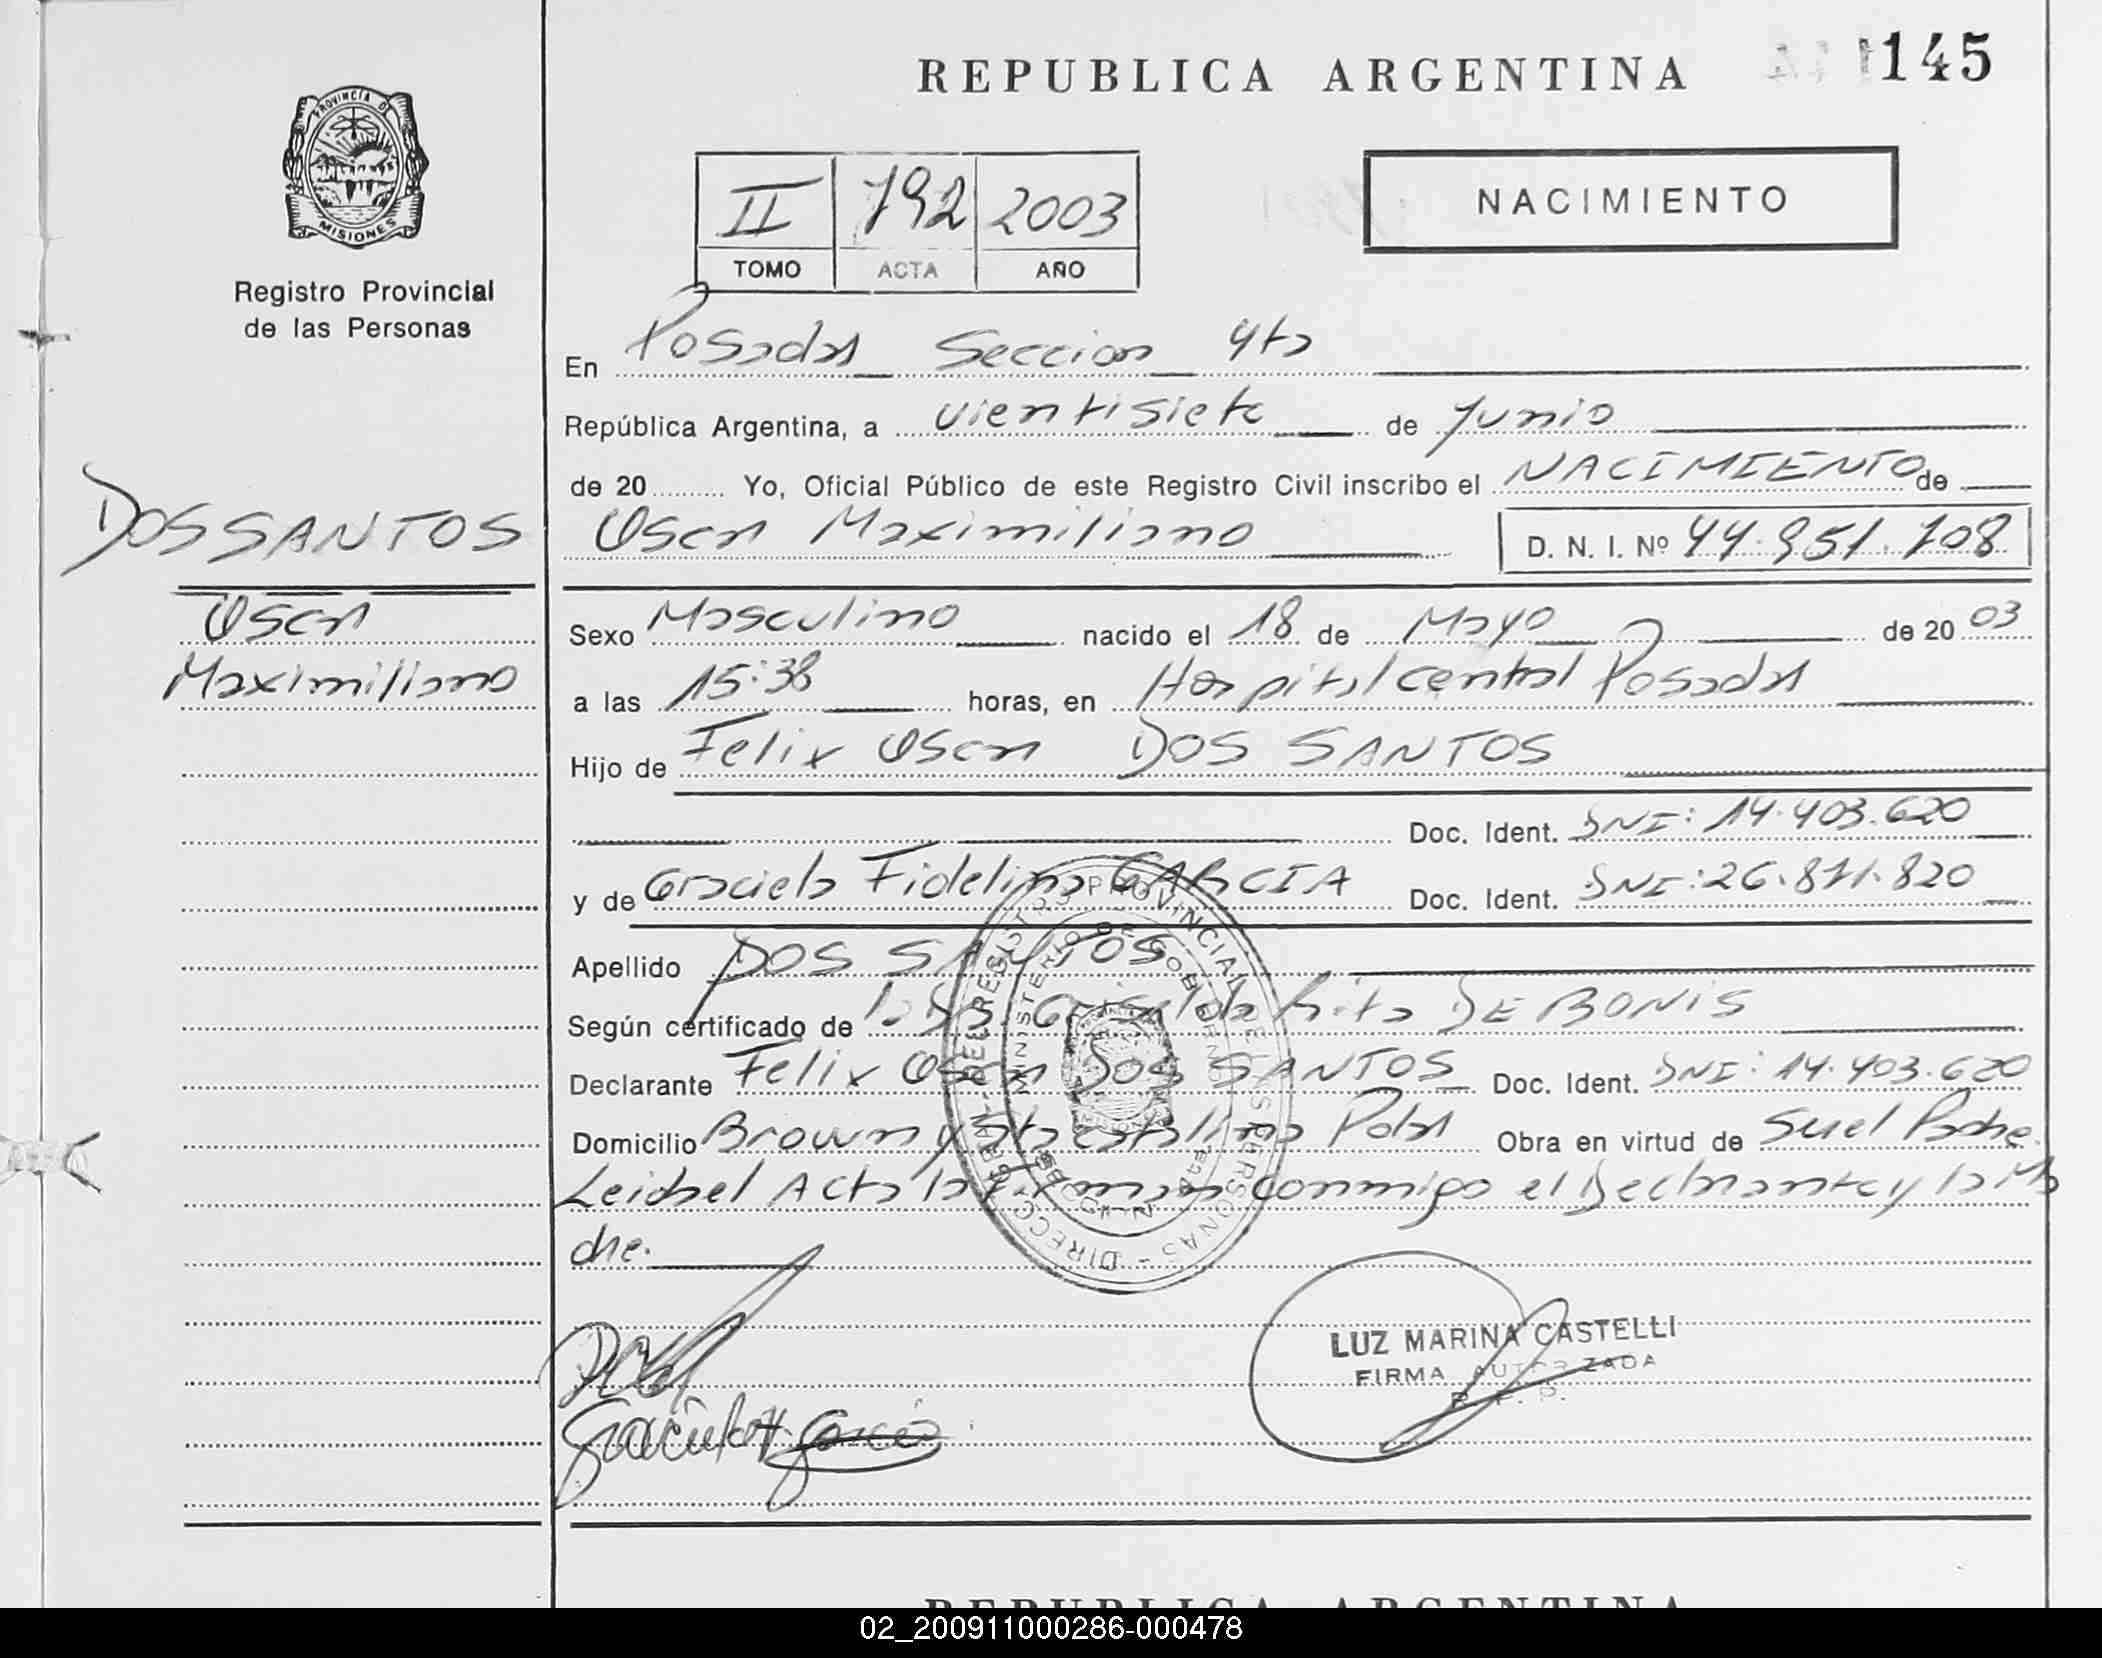 REPUBLICA ARGENTINA
145
PROVINCIA DE
MISIONES
Registro Provincial
de las Personas
II 792 2003
TOMO ACTA AÑO
NACIMIENTO
En Posadas Seccion 4ta
República Argentina, a vientisiete de Junio
de 20 ......... Yo, Oficial Público de este Registro Civil inscribo el NACIMIENTO de
Oscar Maximiliano D. N. I. Nº 44.951.708
DOS SANTOS
Oscar
Maximiliano
Sexo Masculino nacido el 18 de Mayo de 20 03
a las 15:38 horas, en Hospital central Posadas
Hijo de Felix Oscar DOS SANTOS
Doc. Ident. DNI: 14.403.620
y de Graciela Fidelina GARCIA Doc. Ident. DNI: 26.871.820
Apellido DOS SANTOS
Según certificado de la Dra Griselda Rita DE BONIS
Declarante Felix Oscar DOS SANTOS Doc. Ident. DNI: 14.403.620
Domicilio Brown y Sta Catalina Pdas Obra en virtud de Ser el Padre.
Leida el Acta la firman conmigo el Declarante y la Ma
dre.
LUZ MARINA CASTELLI
FIRMA AUTORIZADA
R. P. P.
REPUBLICA ARGENTINA
02_200911000286-000478